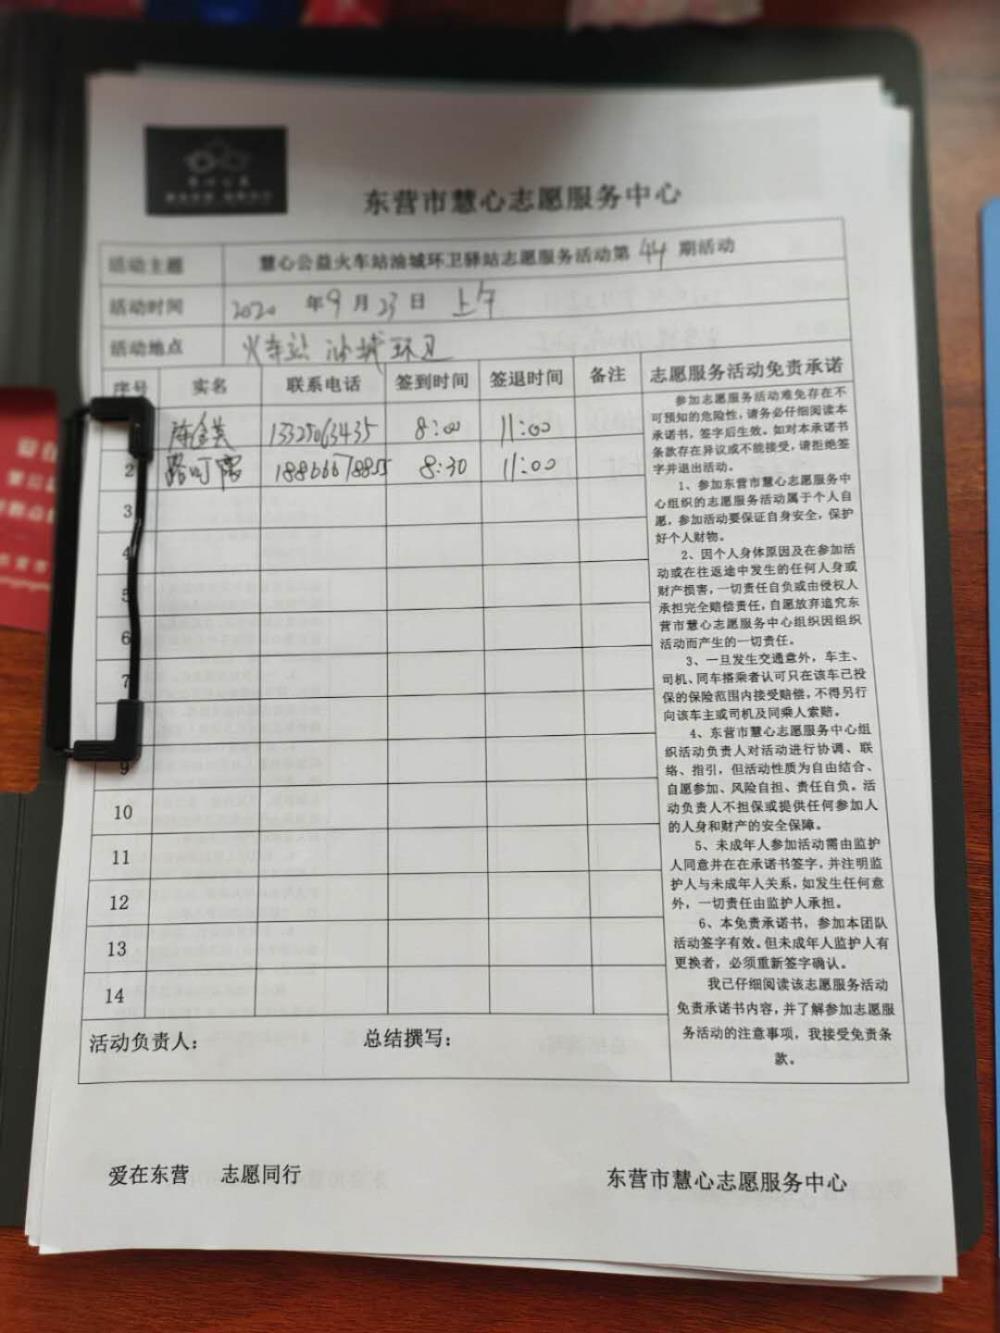 东营市慧心志愿服务中心
活动主题 慧心公益火车站油城环卫驿站志愿服务活动第 44 期活动
活动时间 2020 年 9 月 23 日 上午
活动地点 火车站 油城环卫
序号 实名 联系电话 签到时间 签退时间 备注 志愿服务活动免责承诺
13325063435 8:00 11:00
2 18866678855 8:30 11:00
3
4
5
6
7
9
10
11
12
13
14
参加志愿服务活动难免存在不
可预知的危险性，请务必仔细阅读本
承诺书，签字后生效。如对本承诺书
条款存在异议或不能接受，请拒绝签
字并退出活动。
1、参加东营市慧心志愿服务中
心组织的志愿服务活动属于个人自
愿，参加活动要保证自身安全，保护
好个人财物。
2、因个人身体原因及在参加活
动或在往返途中发生的任何人身或
财产损害，一切责任自负或由侵权人
承担完全赔偿责任，自愿放弃追究东
营市慧心志愿服务中心组织因组织
活动而产生的一切责任。
3、一旦发生交通意外，车主、
司机、同车搭乘者认可只在该车已投
保的保险范围内接受赔偿，不得另行
向该车主或司机及同乘人索赔。
4、东营市慧心志愿服务中心组
织活动负责人对活动进行协调、联
络、指引，但活动性质为自由结合、
自愿参加、风险自担、责任自负。活
动负责人不担保或提供任何参加人
的人身和财产的安全保障。
5、未成年人参加活动需由监护
人同意并在在承诺书签字，并注明监
护人与未成年人关系，如发生任何意
外，一切责任由监护人承担。
6、本免责承诺书，参加本团队
活动签字有效。但未成年人监护人有
更换者，必须重新签字确认。
我已仔细阅读该志愿服务活动
免责承诺书内容，并了解参加志愿服
务活动的注意事项，我接受免责条
款。
活动负责人： 总结撰写：
爱在东营 志愿同行 东营市慧心志愿服务中心